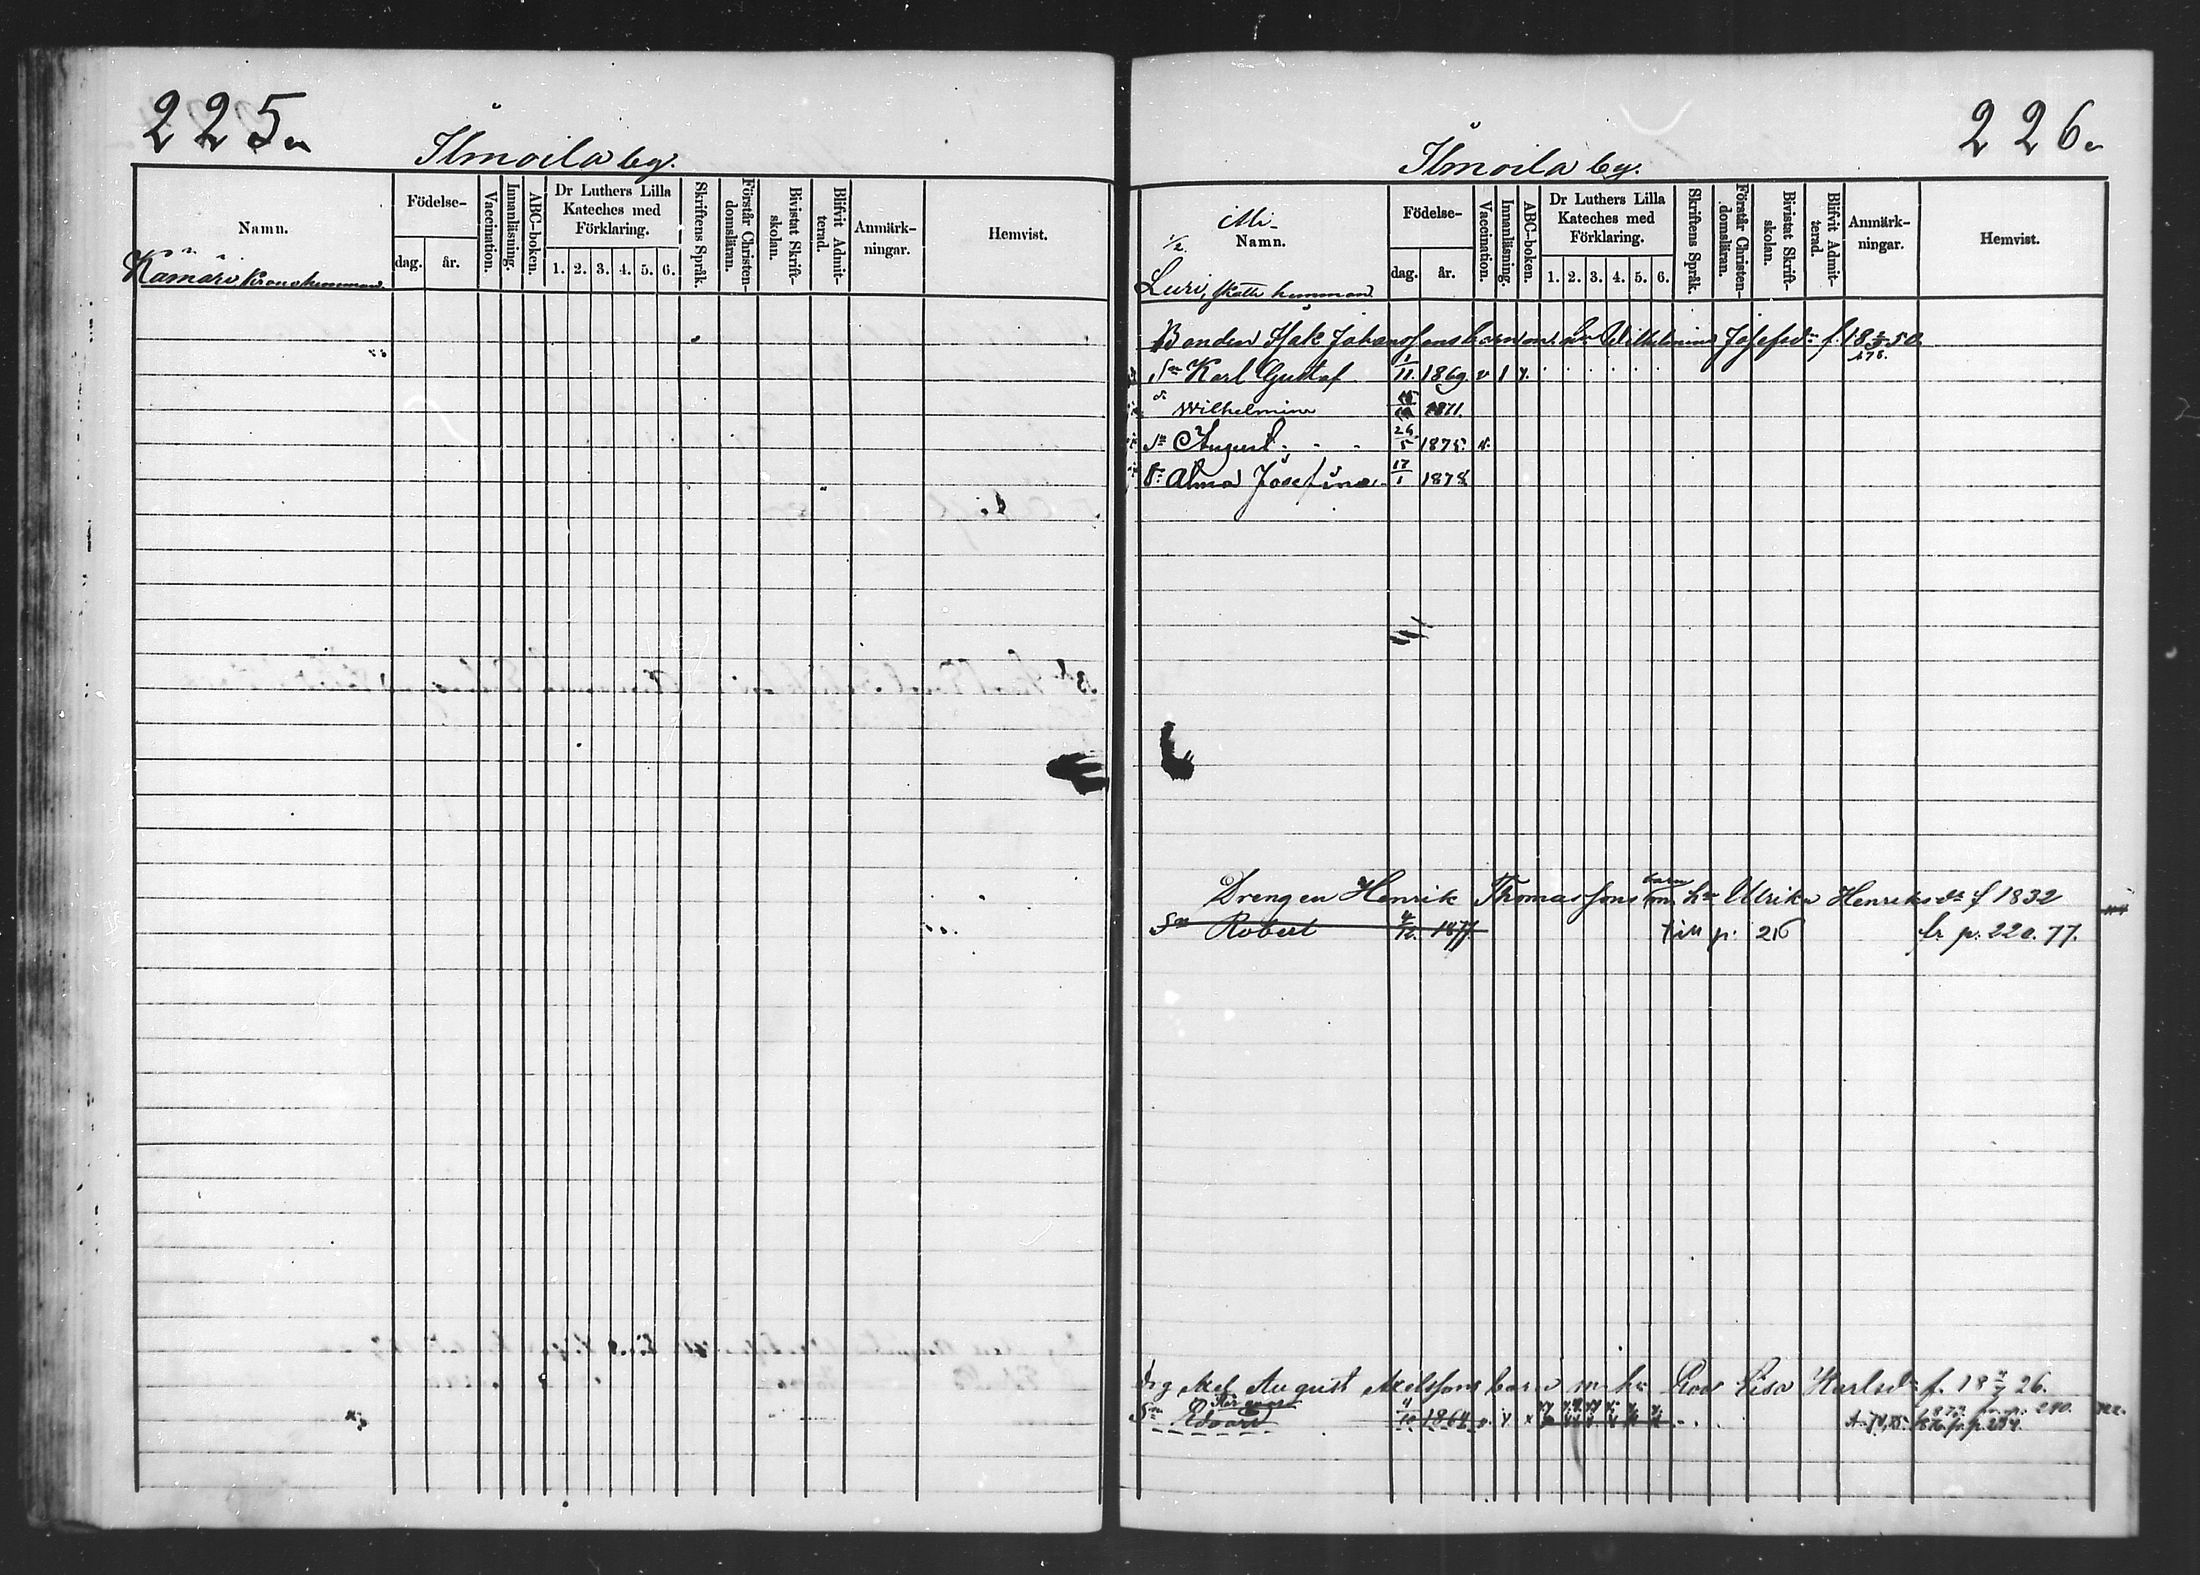 225.
Ilmoila by.
Namn.
Födelse-
dag.
år.
Vaccination.
Innanläsning.
ABC-boken.
Dr Luthers Lilla
Kateches med
Förklaring.
1. 2. 3. 4. 5. 6.
Skriftens Språk.
Förstår Christen-
domsläran.
Bivistat Skrift-
skolan.
Blifvit Admit-
terad.
Anmärk-
ningar.
Hemvist.
Kamäri Kronohemman
226.
Ilmoila by.
Namn.
Födelse-
dag.
år.
Vaccination.
Innanläsning.
ABC-boken.
Dr Luthers Lilla
Kateches med
Förklaring.
1. 2. 3. 4. 5. 6.
Skriftens Språk.
Förstår Christen-
domsläran.
Bivistat Skrift-
skolan.
Blifvit Admit-
terad.
Anmärk-
ningar.
Hemvist.
1/2
Luri, skatte hemman
Bonden Isak Johanssons barn m. hu Wilhelmina Josefsdr f. 18 50
Sn Karl Gustaf 1/11 1869 v 1 x
dr Wilhelmina 1871.
Sn August 26/5 1875. v.
Dr Alma Josefina 17/1 1878
Drengen Henrik Thomassons barn m. hu Ulrika Henriksdr f 1832
Sn Robert 1877 till p. 216 fr p. 220. 77.
Drg Axel August Axelssons barn m. hu Eva Lisa Karlsdr f. 18 26.
Sn Edvard 1864 v. x x